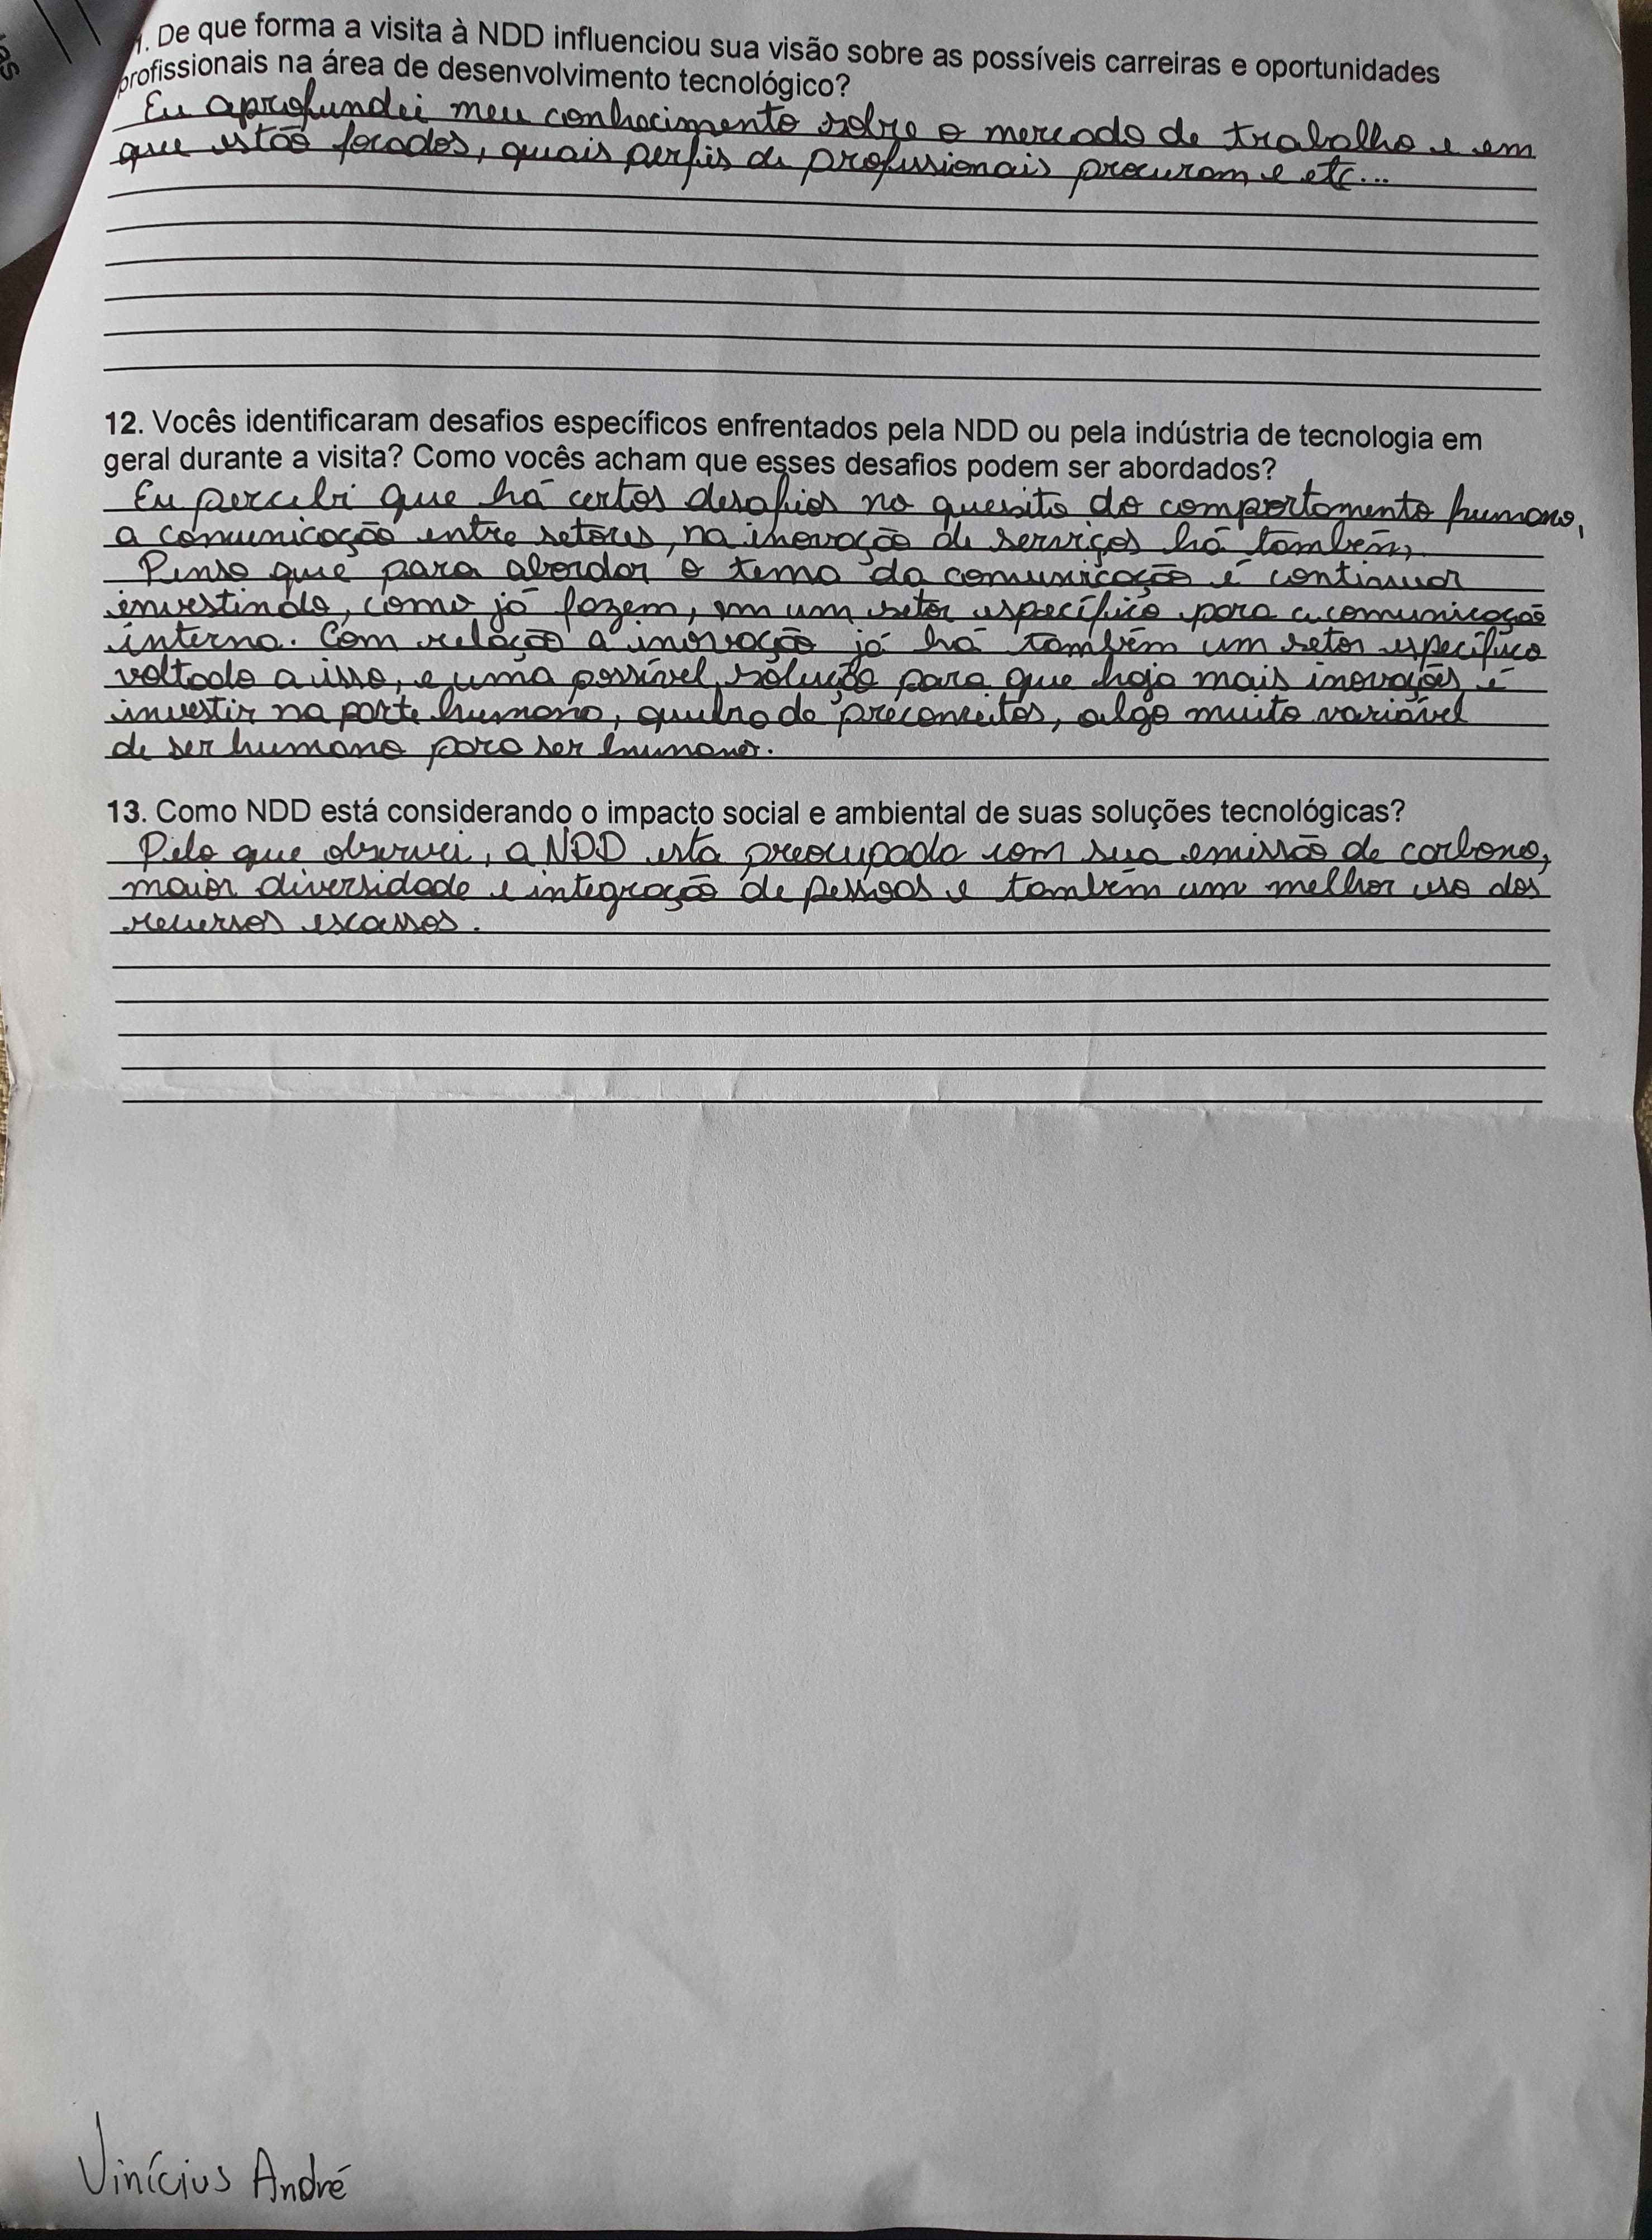 1. De que forma a visita à NDD influenciou sua visão sobre as possíveis carreiras e oportunidades
profissionais na área de desenvolvimento tecnológico?
Eu aprofundei meu conhecimento sobre o mercado de trabalho e em
que estão focados, quais perfis de profissionais procuram e etc...
12. Vocês identificaram desafios específicos enfrentados pela NDD ou pela indústria de tecnologia em
geral durante a visita? Como vocês acham que esses desafios podem ser abordados?
Eu percebi que há certos desafios no quesito do comportamento humano,
a comunicação entre setores, na inovação de serviços há também,
Penso que para abordar o tema da comunicação é continuar
investindo, como já fazem, em um setor específico para a comunicação
interna. Com relação a inovação já há também um setor específico
voltado a isso, e uma possível solução para que haja mais inovações é
investir na parte humana, quebra de preconceitos, algo muito variável
de ser humano para ser humano.
13. Como NDD está considerando o impacto social e ambiental de suas soluções tecnológicas?
Pelo que observei, a NDD esta preocupada com sua emissão de carbono,
maior diversidade e integração de pessoas e também um melhor uso dos
recursos escassos.
Vinícius André